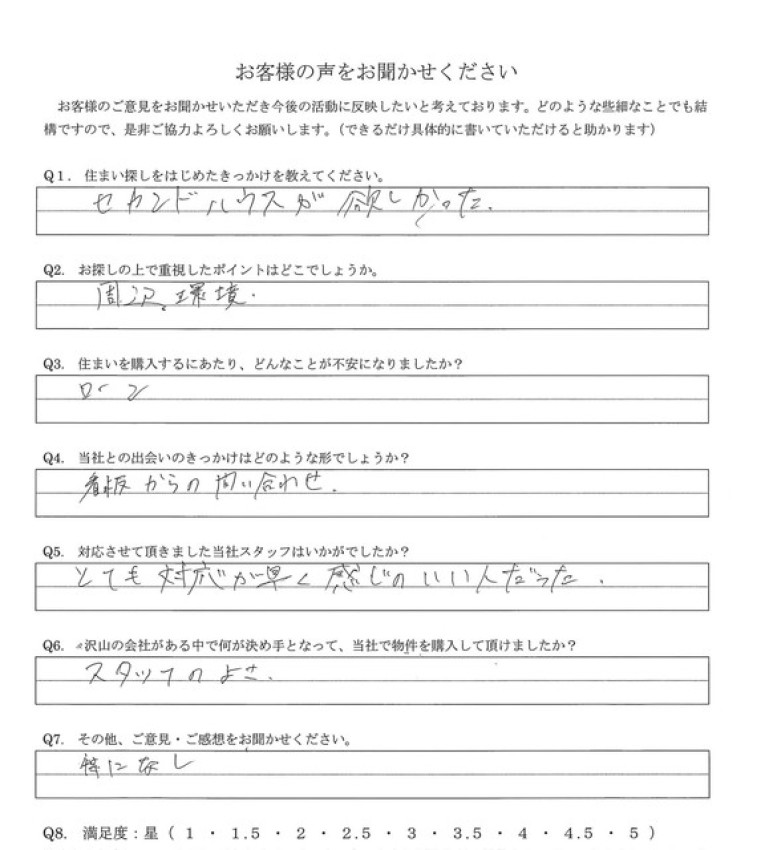 お客様の声をお聞かせください
お客様のご意見をお聞かせいただき今後の活動に反映したいと考えております。どのような些細なことでも結
構ですので、是非ご協力よろしくお願いします。（できるだけ具体的に書いていただけると助かります）
Q1. 住まい探しをはじめたきっかけを教えてください。
セカンドハウスが欲しかった.
Q2. お探しの上で重視したポイントはどこでしょうか。
周辺環境.
Q3. 住まいを購入するにあたり、どんなことが不安になりましたか？
ローン
Q4. 当社との出会いのきっかけはどのような形でしょうか？
看板からの問い合わせ.
Q5. 対応させて頂きました当社スタッフはいかがでしたか？
とても対応が早く感じのいい人だった.
Q6. 沢山の会社がある中で何が決め手となって、当社で物件を購入して頂けましたか？
スタッフのよさ.
Q7. その他、ご意見・ご感想をお聞かせください。
特になし
Q8. 満足度：星（ 1 ・ 1.5 ・ 2 ・ 2.5 ・ 3 ・ 3.5 ・ 4 ・ 4.5 ・ 5 ）